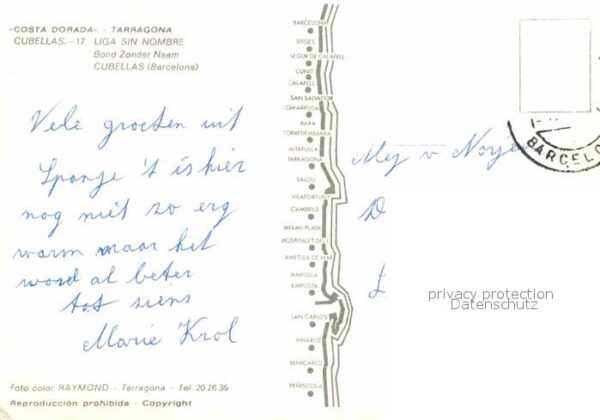 -COSTA DORADA- - TARRAGONA
CUBELLAS.-17 LIGA SIN NOMBRE
Bond Zonder Naam
CUBELLAS (Barcelona)
Vele groeten uit
Spanje 't is hier
nog niet zo erg
warm maar het
word al beter
tot ziens
Marie Krol
Foto color RAYMOND - Tarragona - Tel 20 26 35
Reproducción prohibida - Copyright
BARCELONA
SITGES
SEGUR DE CALAFELL
CUNIT
CALAFELL
SAN SALVADOR
COMARRUGA
BARA
TORREDEMBARRA
ALTAFULLA
TARRAGONA
SALOU
VILAFORTUNY
CAMBRILS
MIAMI-PLAYA
HOSPITALET DEL I.
AMETLLA DE MAR
AMPOLLA
AMPOSTA
SAN CARLOS
VINAROZ
BENICARLO
PEÑISCOLA
BARCELO
Mej v
D
privacy protection
Datenschutz